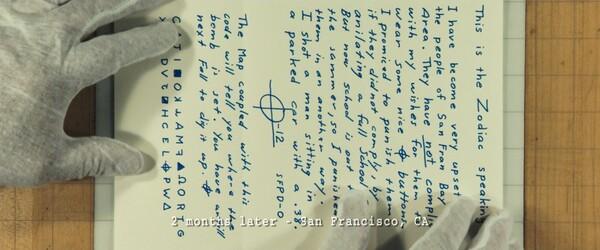 This is the Zodiac speaking
I have become very upset
the people of San Fran Bay
Area. They have not comp
with my wishes for them to
wear some nice ⌖ buttons.
I promiced to punish them
if they did not comply, by
anilating a full School
But now school is out
the sammer, so I punished
them in an another way.
I shot a man sitting in
a parked car with a .38
⌖-12 SFPD-0
The Map coupled with this
code will tell you where the
bomb is set. You have untill
next Fall to dig it up. ⌖
2 months later - San Francisco, CA.